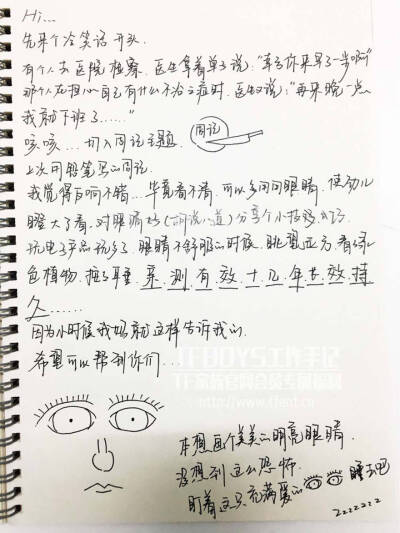 Hi...
先来个冷笑话开头.
有个人去医院检察. 医生拿着单子说:"幸亏你来早了一步啊"
那个人在担心自己有什么不治之症时. 医生又说:"再来晚一点.
我就下班了......"
咳咳... 切入周记主题. 周记
上次可铅笔写的周记.
我觉得反响不错... 毕竟看不清. 可以多问问眼睛. 使劲儿
瞪大了看. 对眼睛好(胡说八道)分享个小技巧
玩电子产品玩多了 眼睛不舒服的时候. 眺望远方. 看绿
色植物. 揉了睡 亲测有效十几年长效持
久......
因为小时候我妈就这样告诉我的.
希望可以帮到你们...
TFBOYS工作手记
TF家族官网会员专属福利
http://www.tfent.cn
本想画个美美的明亮眼睛.
没想到这么恐怖.
盯着这只充满爱的 睡去吧
zzzzzzz